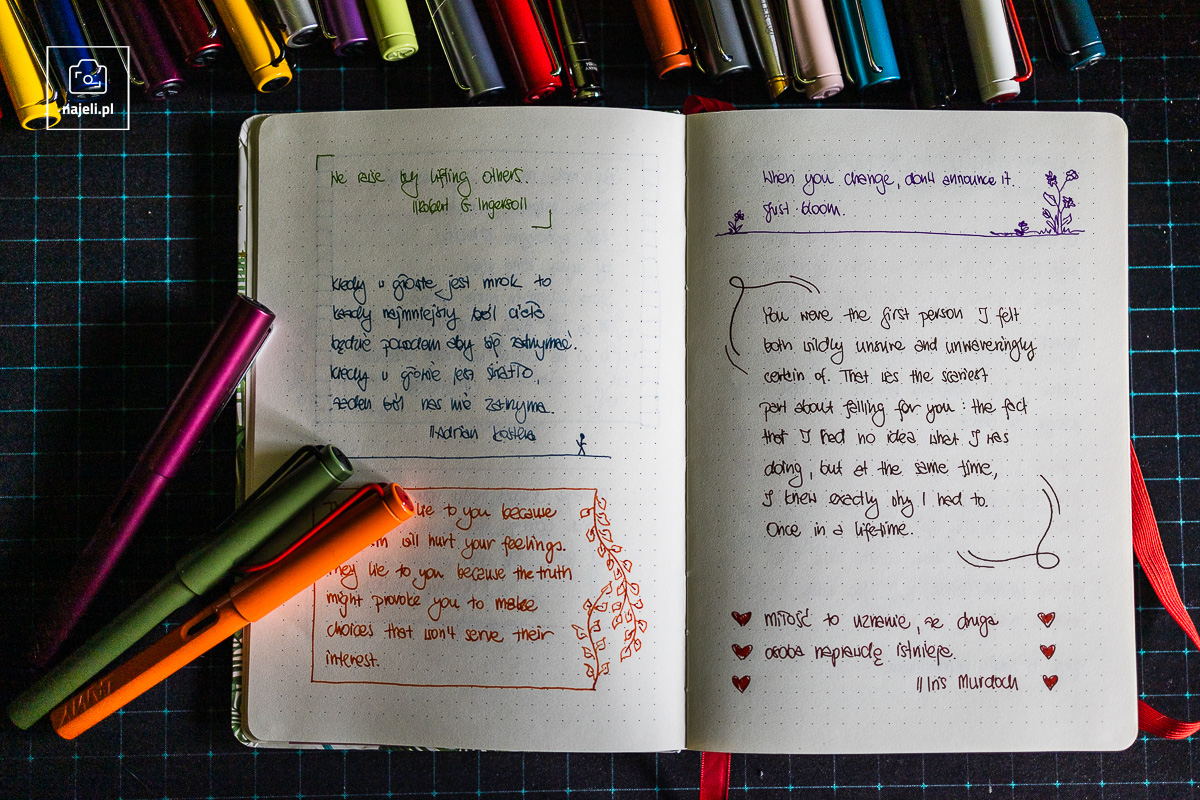 najeli.pl
We raise by lifting others.
//Robert G. Ingersoll
kiedy w głowie jest mrok to
każdy najmniejszy ból ciała
będzie powodem aby się zatrzymać.
kiedy w głowie jest światło,
żaden ból nas nie zatrzyma.
//Adrian Kostera
lie to you because
will hurt your feelings.
They lie to you because the truth
might provoke you to make
choices that won't serve their
interest.
LAMY
When you change, don't announce it.
Just bloom.
You were the first person I felt
both wildly unsure and unwaveringly
certain of. That was the scariest
part about falling for you: the fact
that I had no idea what I was
doing, but at the same time,
I knew exactly why I had to.
Once in a lifetime.
miłość to uznanie, że druga
osoba naprawdę istnieje.
//Iris Murdoch